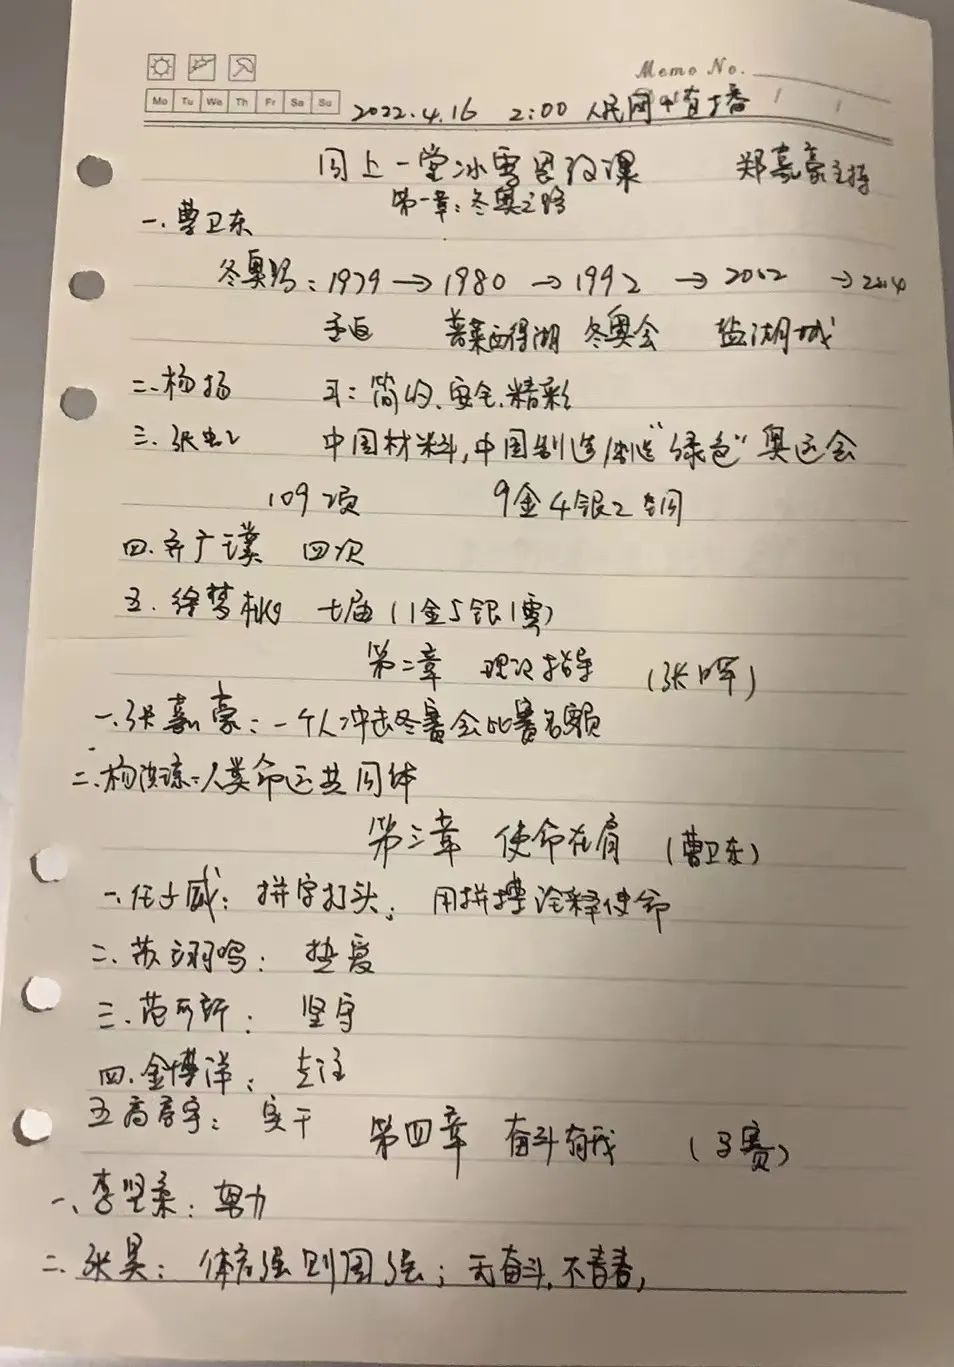 Memo No.
Mo Tu We Th Fr Sa Su
2022.4.16 2:00 人民网 直播
同上一堂冰雪思政课 郑嘉豪主持
第一章:冬奥之路
一、曹卫东
冬奥路:1979→1980→1992→2002→2004
普莱西得湖 冬奥会 盐湖城
二、杨扬 习:简约、安全、精彩
三、张虹 中国材料,中国制造/创造"绿色"奥运会
109项 9金4银2铜
四、齐广璞 四次
五、徐梦桃 七届(1金5银1零)
第二章 理论指导 (张晖)
一、张嘉豪:一个人冲击冬奥会比赛名额
二、杨洪琼:人类命运共同体
第三章 使命在肩 (曹卫东)
一、任子威:拼字打头;用拼搏诠释使命
二、苏翊鸣:热爱
三、范可新:坚守
四、金博洋:专注
五高亭宇:实干
第四章 奋斗有我
一、李坚柔:努力
二、张昊:体育强则国强;无奋斗,不青春,